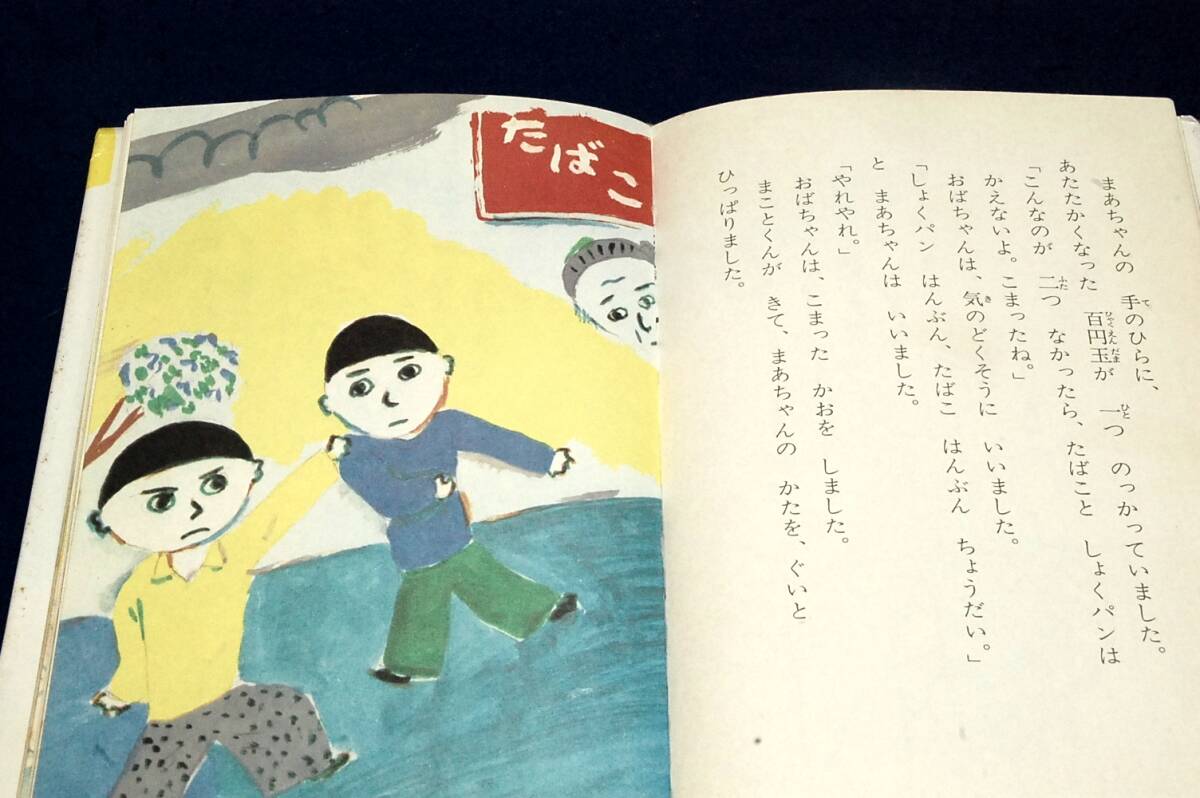 たばこ
まあちゃんの 手のひらに、
あたたかくなった 百円玉が 一つ のっかっていました。
「こんなのが 二つ なかったら、たばこと しょくパンは
かえないよ。こまったね。」
おばちゃんは、気のどくそうに いいました。
「しょくパン はんぶん、たばこ はんぶん ちょうだい。」
と まあちゃんは いいました。
「やれやれ。」
おばちゃんは、こまった かおを しました。
まことくんが きて、まあちゃんの かたを、ぐいと
ひっぱりました。